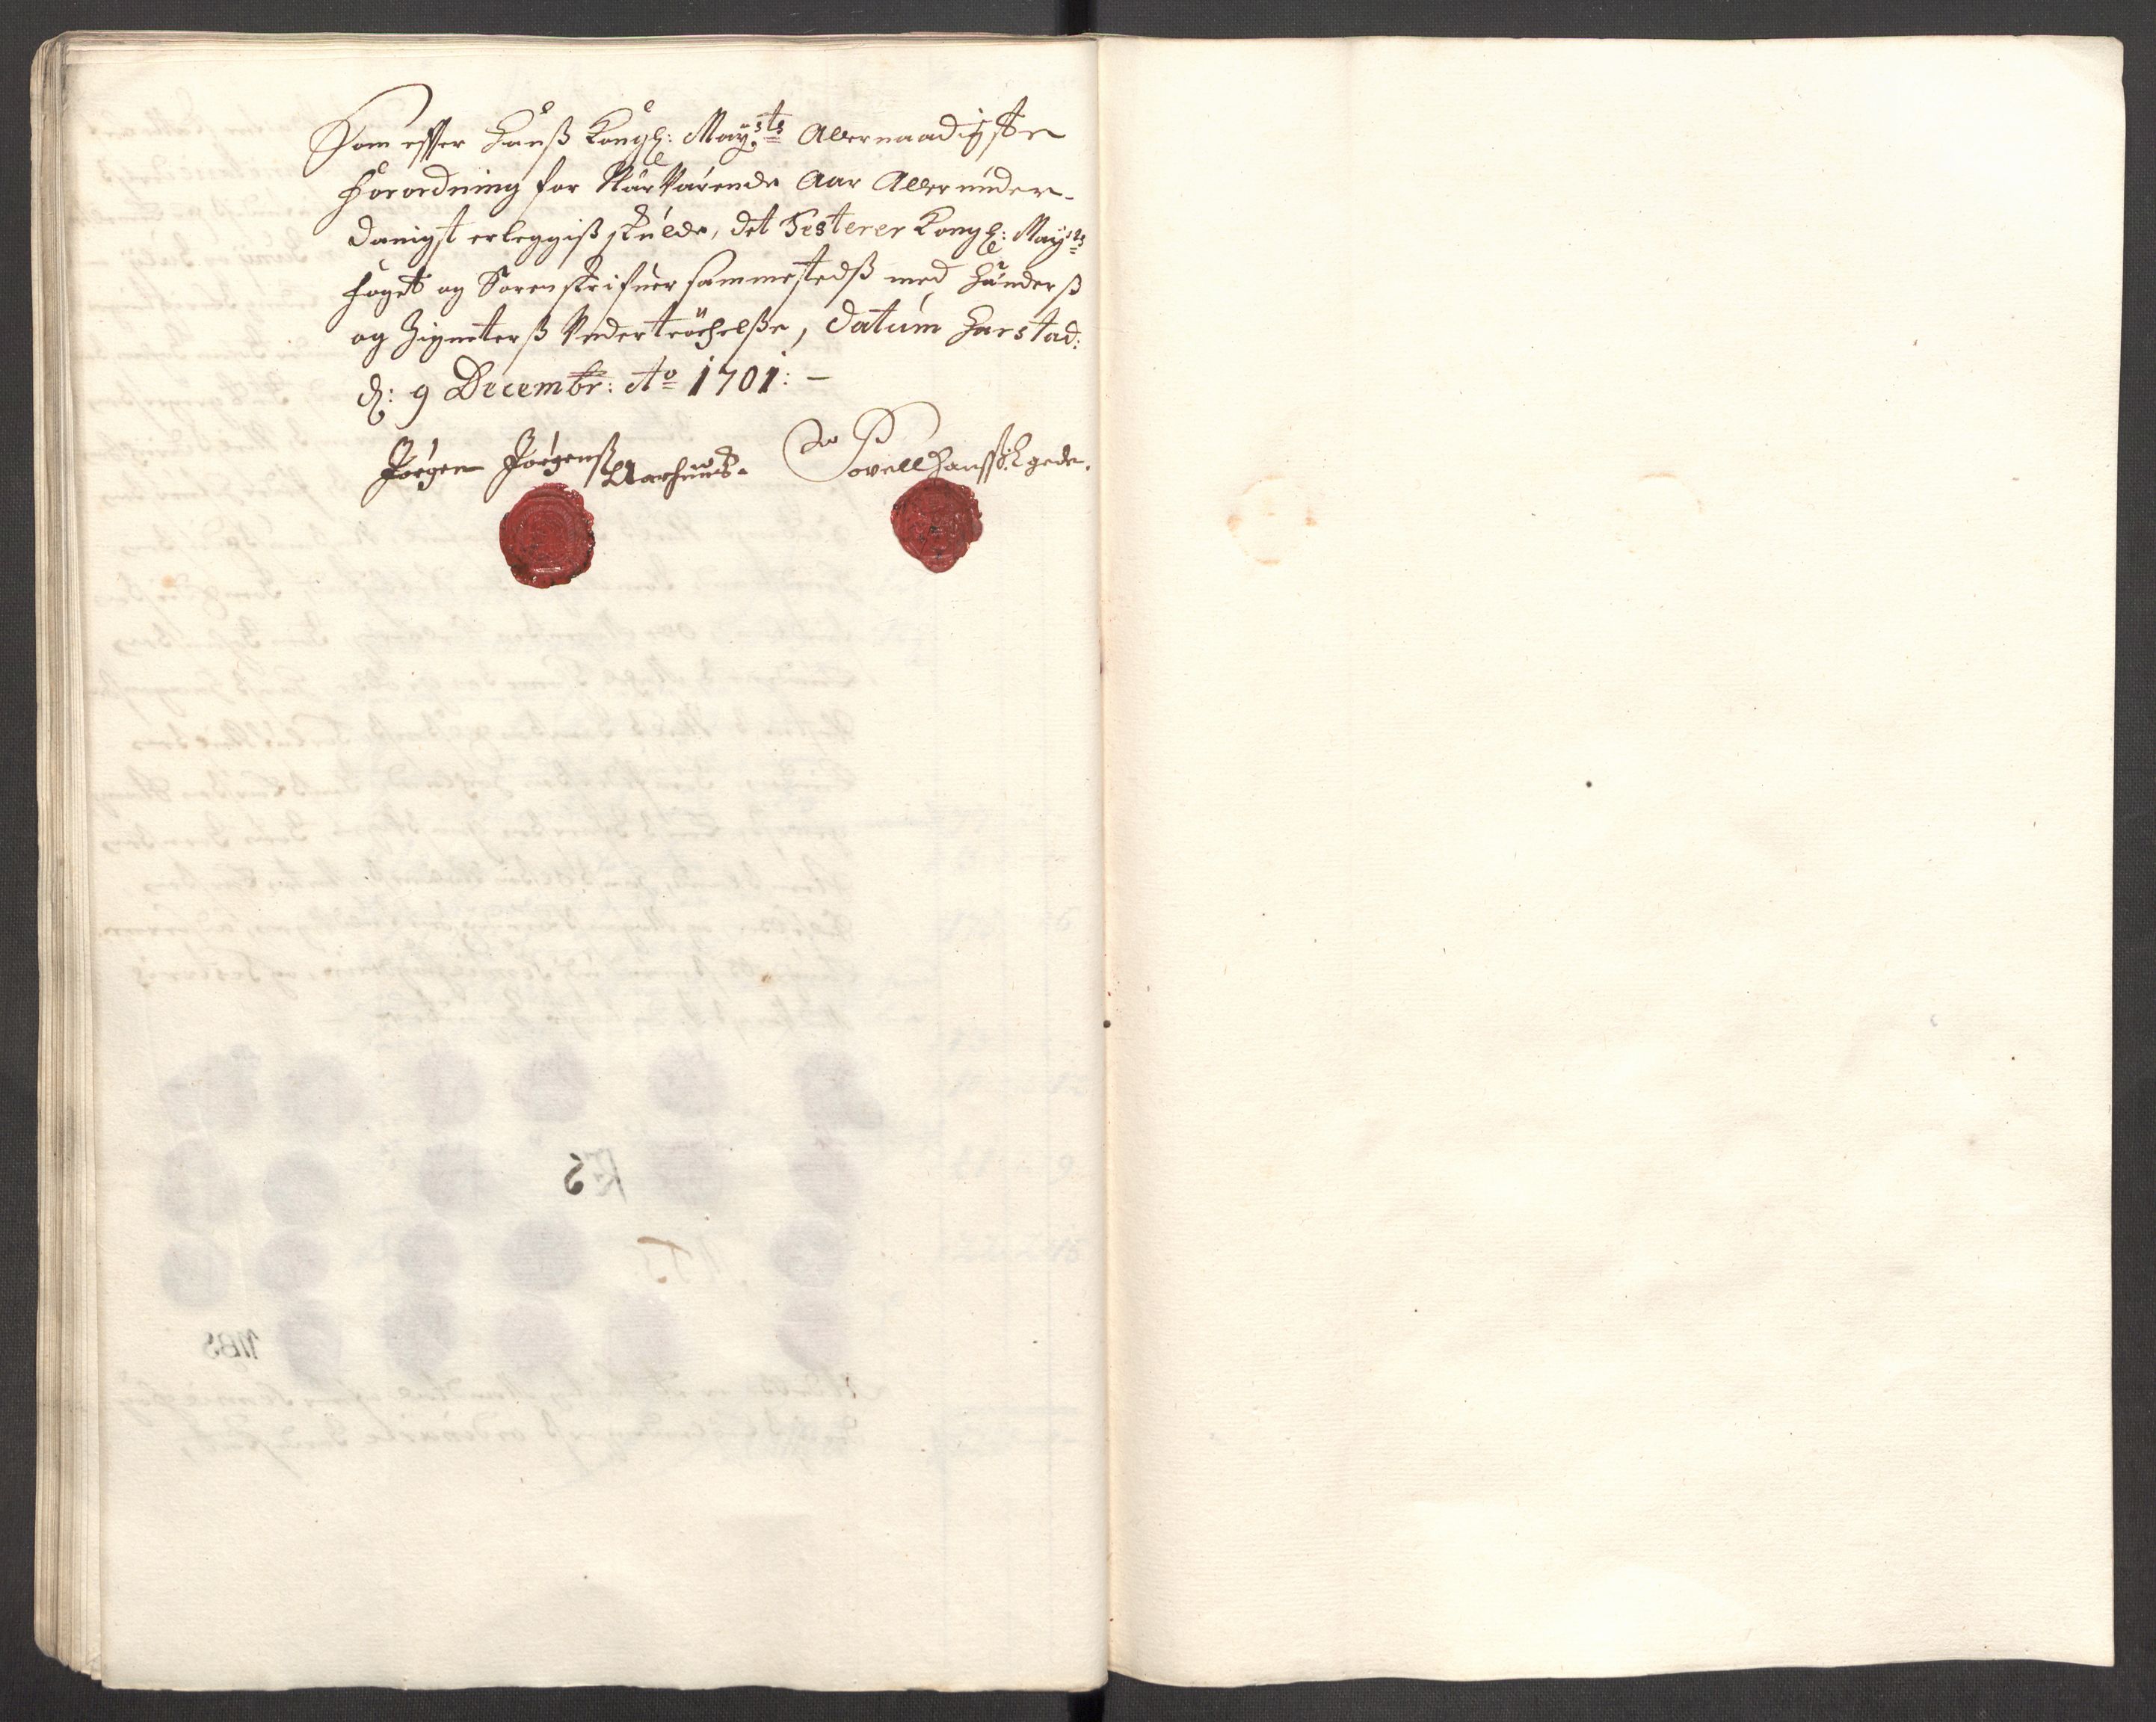 Som efter Hanß Kongl: May:sts Allernaadigste
Forordning for Närvärende Aar Allerunder-
danigst erleggiß skulde, det Testerer Kongl: Mayts
foget og Sorenskrifuer sammestedß med Hænderß
og Zigneterß Undertröchelße, Datum Harstad:
d: 9 Decembr: Ao 1701: –
Jørgen Jørgenß Aarhuus. Povell Hanssß: Egede.